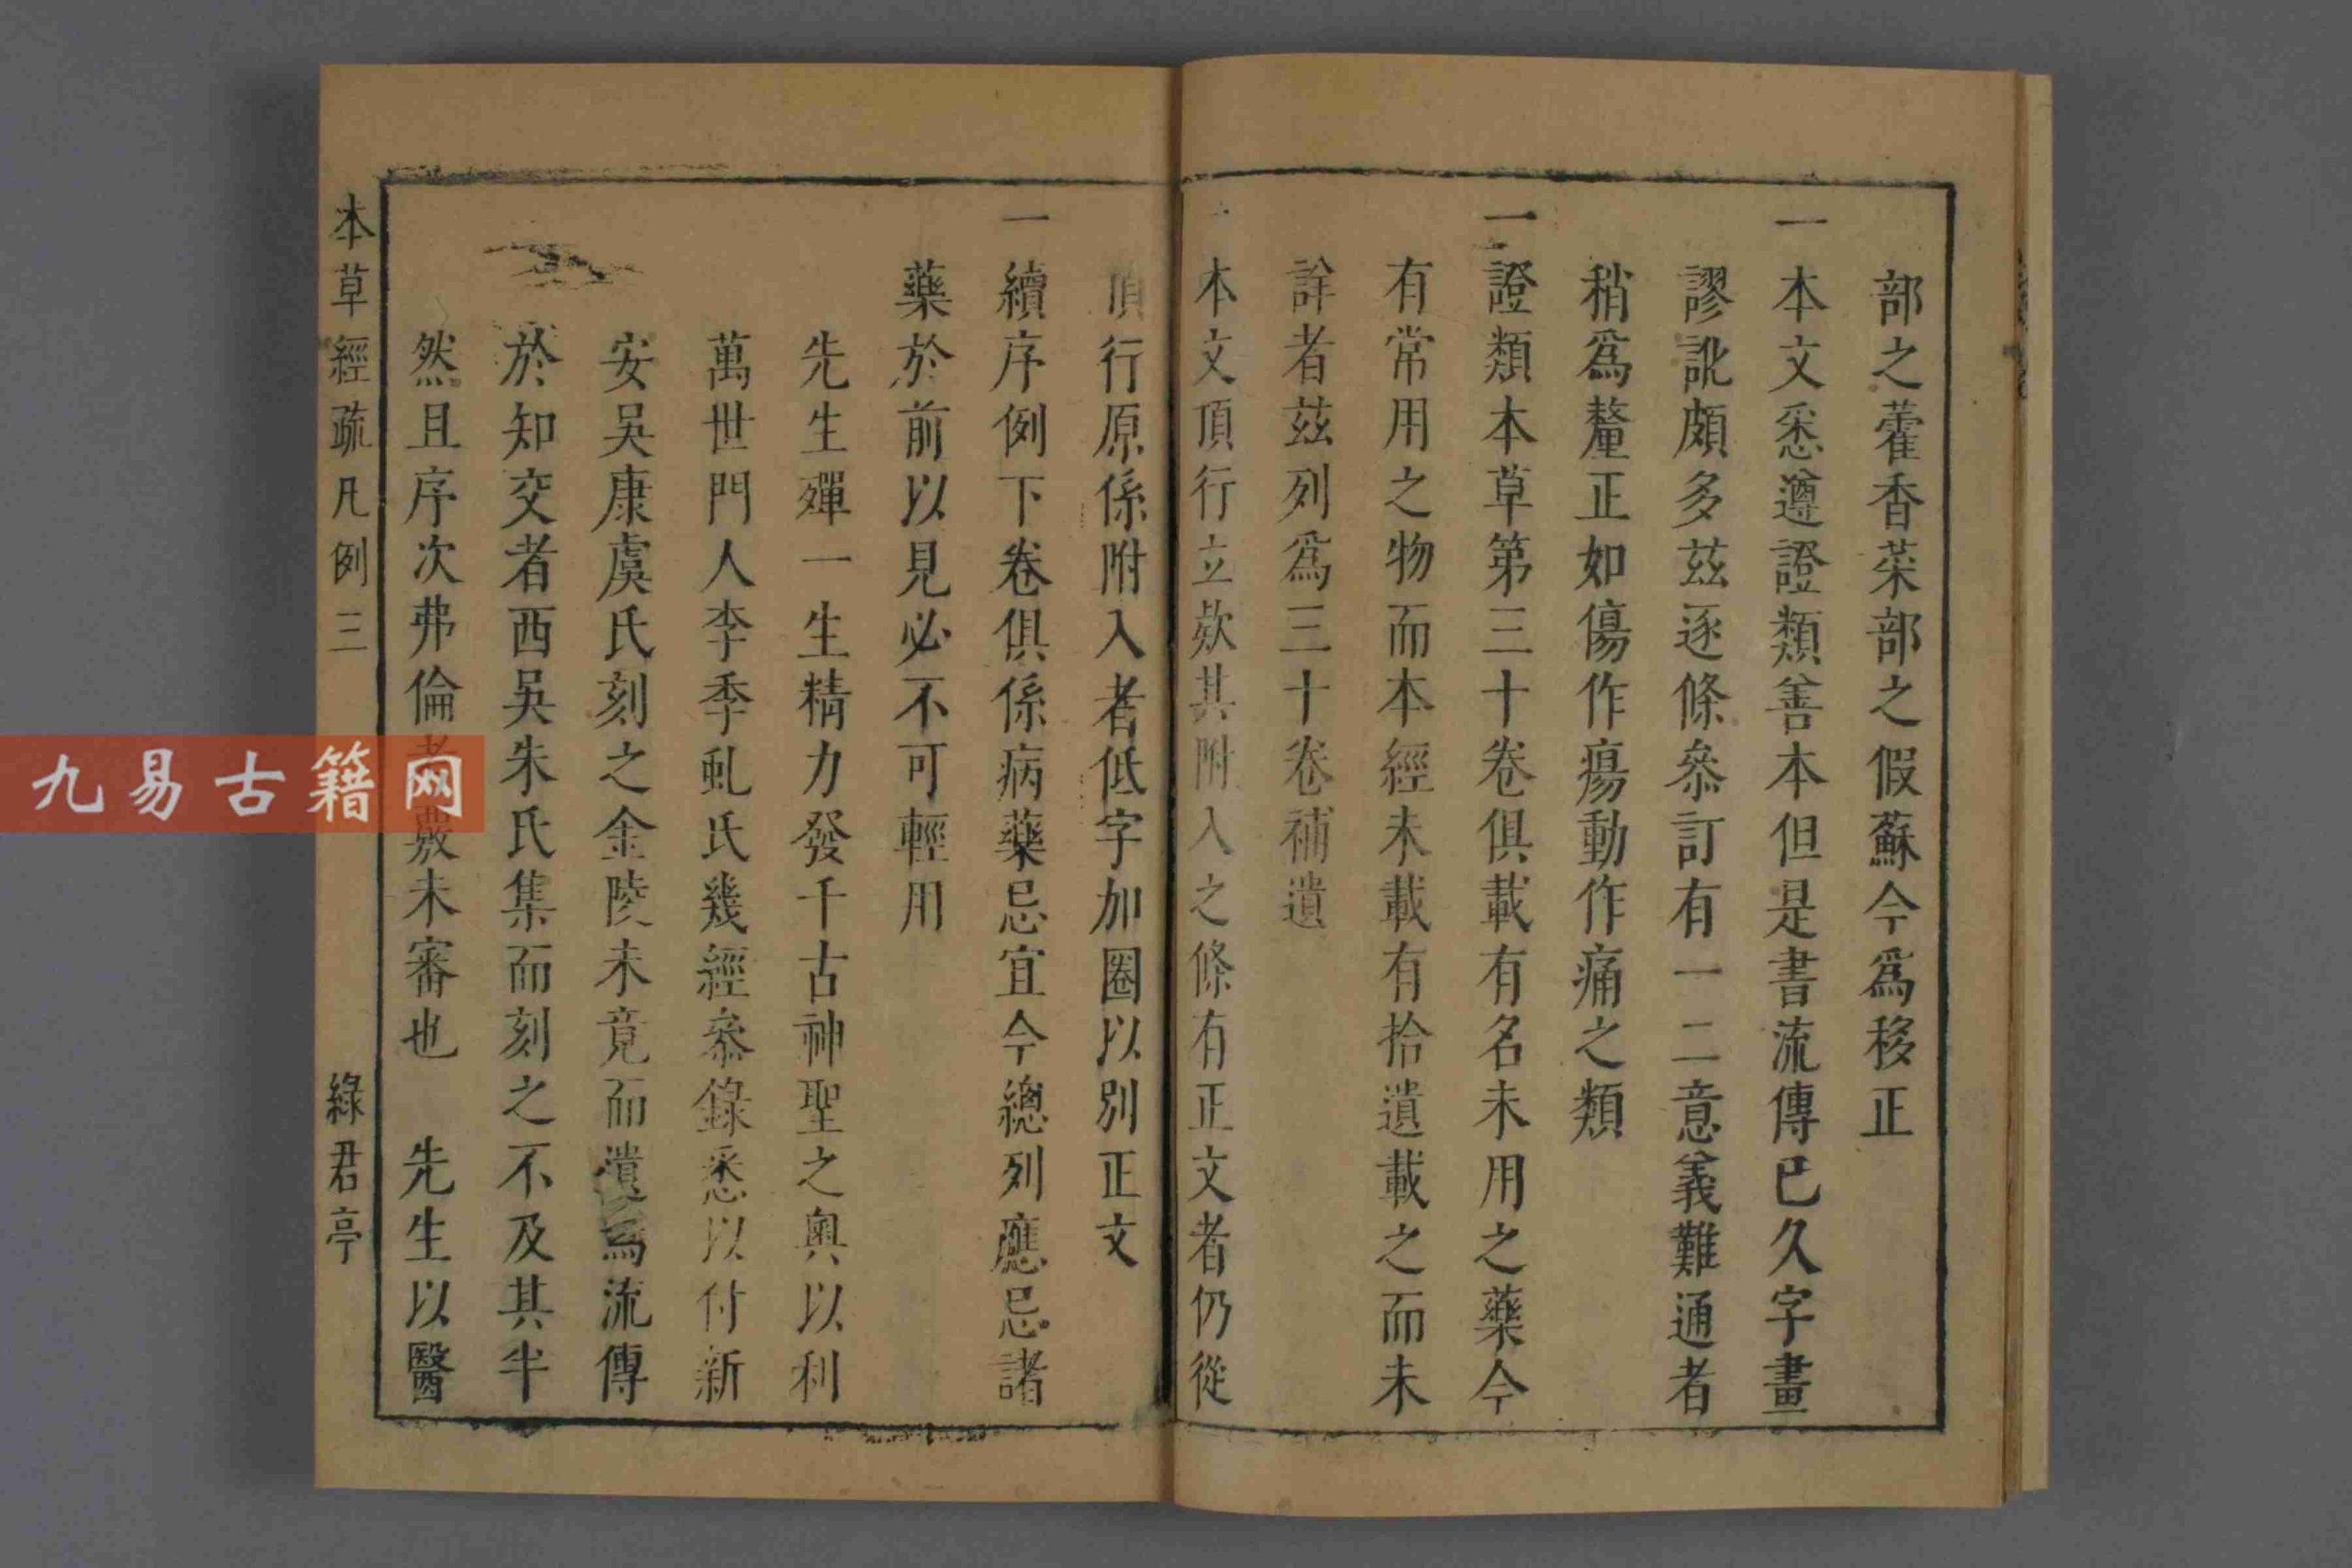 部之藿香菜部之假蘇今爲移正
一本文悉遵證類善本但是書流傳已久字畫
謬訛頗多茲逐條叅訂有一二意義難通者
稍爲釐正如傷作瘍動作痛之類
一證類本草第三十卷俱載有名未用之藥今
有常用之物而本經未載有拾遺載之而未
詳者茲列爲三十卷補遺
一本文頂行立欵其附入之條有正文者仍從
頂行原係附入者低字加圈以別正文
一續序例下卷俱係病藥忌宜今總列應忌諸
藥於前以見必不可輕用
先生殫一生精力發千古神聖之奥以利
萬世門人李季虬氏幾經叅錄悉以付新
安吳康虞氏刻之金陵未竟而遺焉流傳
於知交者西吳朱氏集而刻之不及其半
然且序次弗倫考覈未審也 先生以醫
本草經疏凡例三 綠君亭
九易古籍网